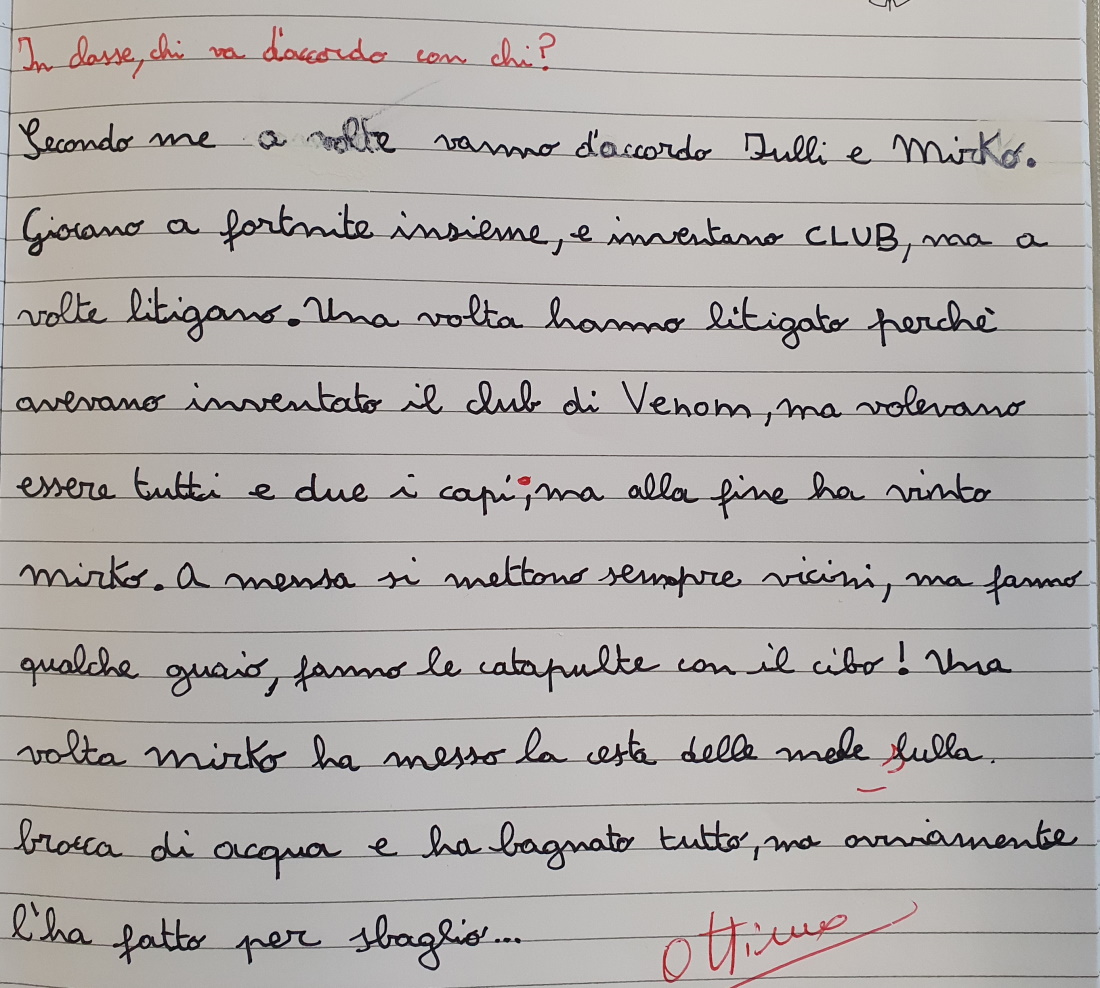 In classe, chi va d'accordo con chi?
Secondo me a volte vanno d'accordo Julli e Mirko.
Giocano a fortnite insieme, e inventano CLUB, ma a
volte litigano. Una volta hanno litigato perché
avevano inventato il club di Venom, ma volevano
essere tutti e due i capi; ma alla fine ha vinto
mirko. A mensa si mettono sempre vicini, ma fanno
qualche guaio, fanno le catapulte con il cibo! Una
volta mirko ha messo la cesta delle mele sulla
brocca di acqua e ha bagnato tutto, ma ovviamente
l'ha fatto per sbaglio...
Ottimo